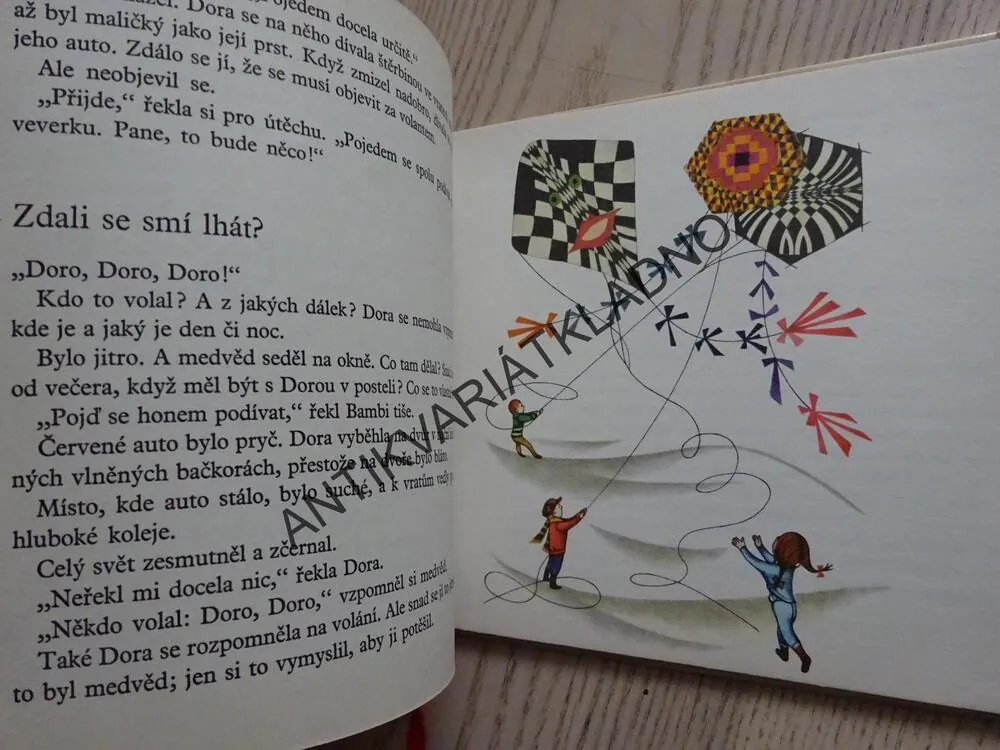 ojedem docela určitě.“
Dora se na něho dívala štěrbinou ve
až byl maličký jako její prst. Když zmizel nadobro,
jeho auto. Zdálo se jí, že se musí objevit za volantem.
Ale neobjevil se.
„Přijde,“ řekla si pro útěchu. „Pojedem se spolu
veverku. Pane, to bude něco!“
Zdali se smí lhát?
„Doro, Doro, Doro!“
Kdo to volal? A z jakých dálek? Dora se nemohla
kde je a jaký je den či noc.
Bylo jitro. A medvěd seděl na okně. Co tam dělal?
od večera, když měl být s Dorou v posteli? Co se to
„Pojď se honem podívat,“ řekl Bambi tiše.
Červené auto bylo pryč. Dora vyběhla na dvůr v
ných vlněných bačkorách, přestože na dvoře bylo
Místo, kde auto stálo, bylo suché, a k vratům vedly
hluboké koleje.
Celý svět zesmutněl a zčernal.
„Neřekl mi docela nic,“ řekla Dora.
„Někdo volal: Doro, Doro,“ vzpomněl si medvěd.
Také Dora se rozpomněla na volání. Ale snad se jí to
to byl medvěd; jen si to vymyslil, aby ji potěšil.
ANTIKVARIÁTKLADNO